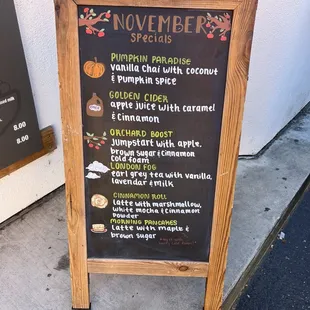 NOVEMBER
specials
PUMPKIN PARADISE
vanilla chai with coconut
& pumpkin spice
GOLDEN CIDER
apple juice with caramel
& cinnamon
ORCHARD BOOST
jumpstart with apple,
brown sugar & cinnamon
cold foam
LONDON FOG
earl grey tea with vanilla,
lavender & milk
CINNAMON ROLL
latte with marshmallow,
white mocha & cinnamon
powder
MORNING PANCAKES
latte with maple &
brown sugar
milk
8.00
8.50